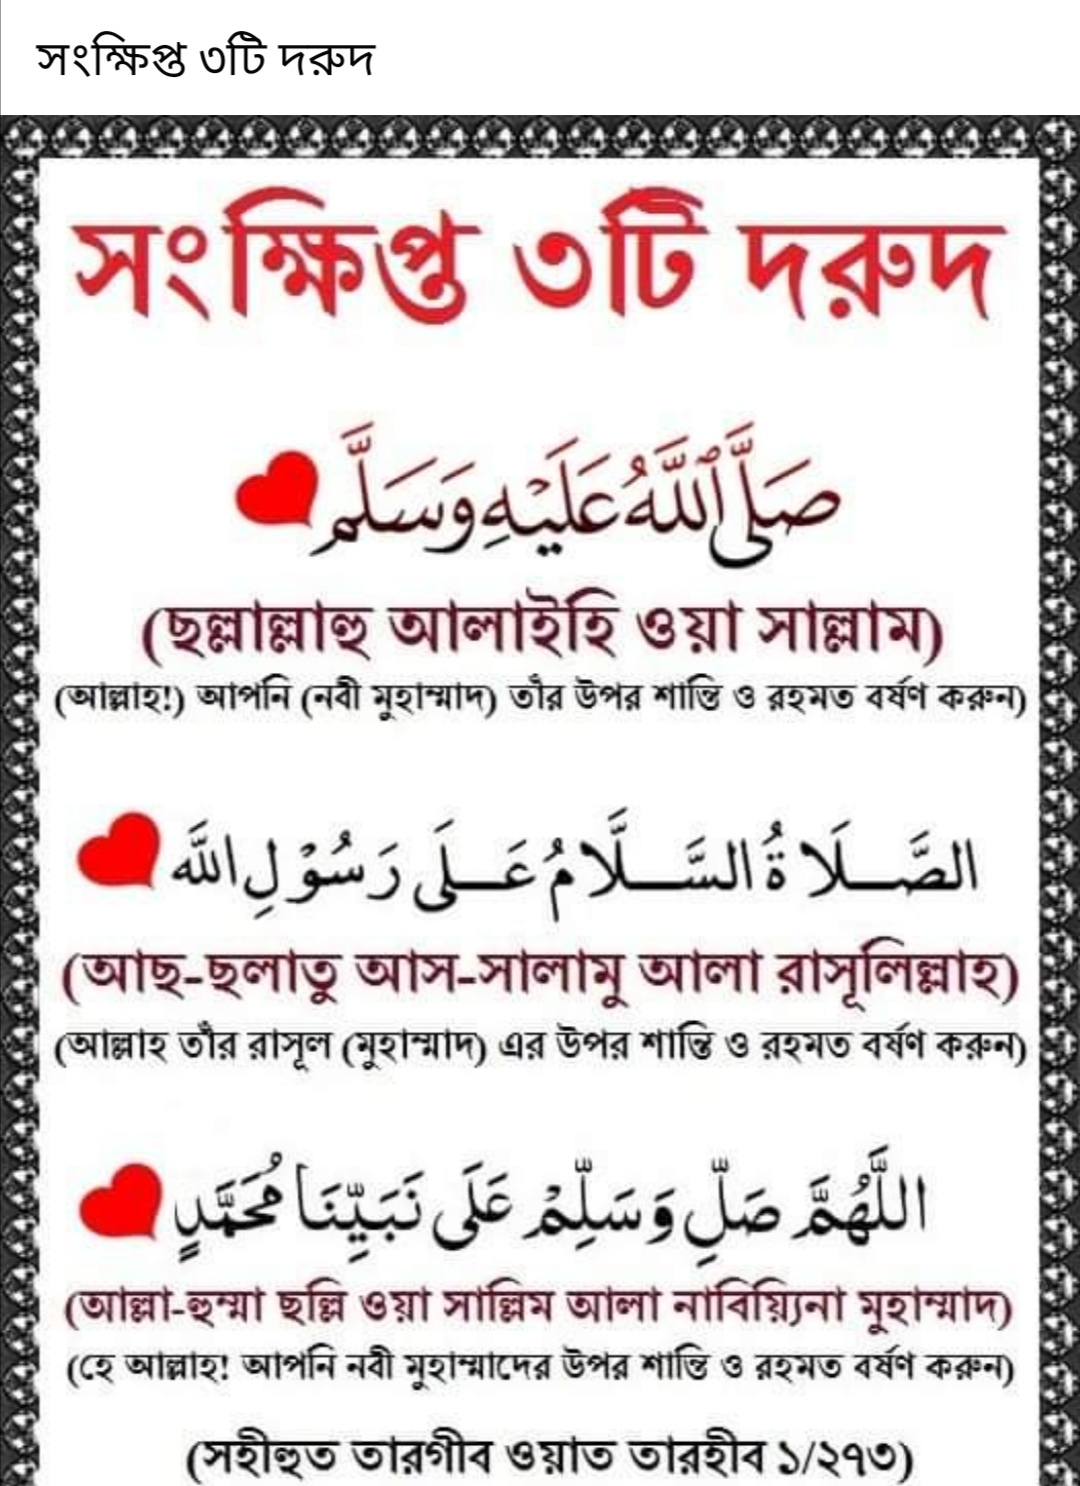 সংক্ষিপ্ত ৩টি দরুদ
সংক্ষিপ্ত ৩টি দরুদ
صَلَّى ٱللَّهُ عَلَيْهِ وَسَلَّم
(ছল্লাল্লাহু আলাইহি ওয়া সাল্লাম)
(আল্লাহ!) আপনি (নবী মুহাম্মাদ) তাঁর উপর শান্তি ও রহমত বর্ষণ করুন)
الصَّلَاةُ السَّلَّامُ عَلَى رَسُوْلِ اللَّه
(আছ-ছলাতু আস-সালামু আলা রাসূলিল্লাহ)
(আল্লাহ তাঁর রাসূল (মুহাম্মাদ) এর উপর শান্তি ও রহমত বর্ষণ করুন)
اللَّهُمَّ صَلِّ وَسَلِّمْ عَلَى نَبَيِّنَا مُحَمَّدٍ
(আল্লা-হুম্মা ছল্লি ওয়া সাল্লিম আলা নাবিয়্যিনা মুহাম্মাদ)
(হে আল্লাহ! আপনি নবী মুহাম্মাদের উপর শান্তি ও রহমত বর্ষণ করুন)
(সহীহুত তারগীব ওয়াত তারহীব ১/২৭৩)